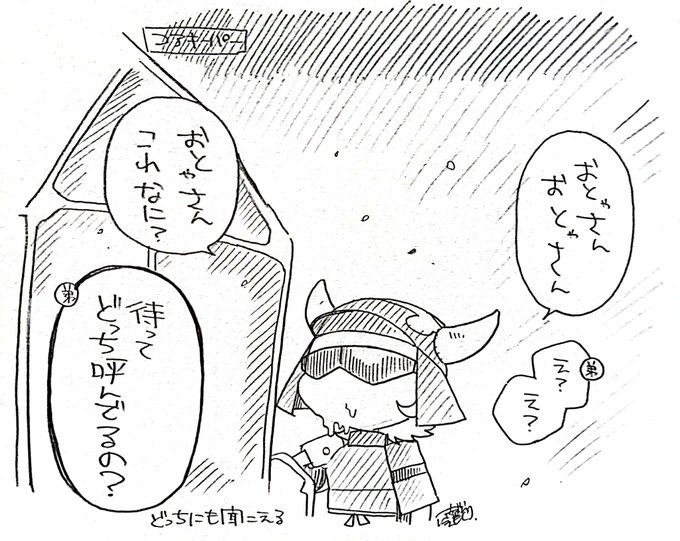 おとゃさん
おとゃさん
弟
え?
え?
おとゃさん
これなに?
弟
待って
どっち呼んでるの?
どっちにも聞こえる